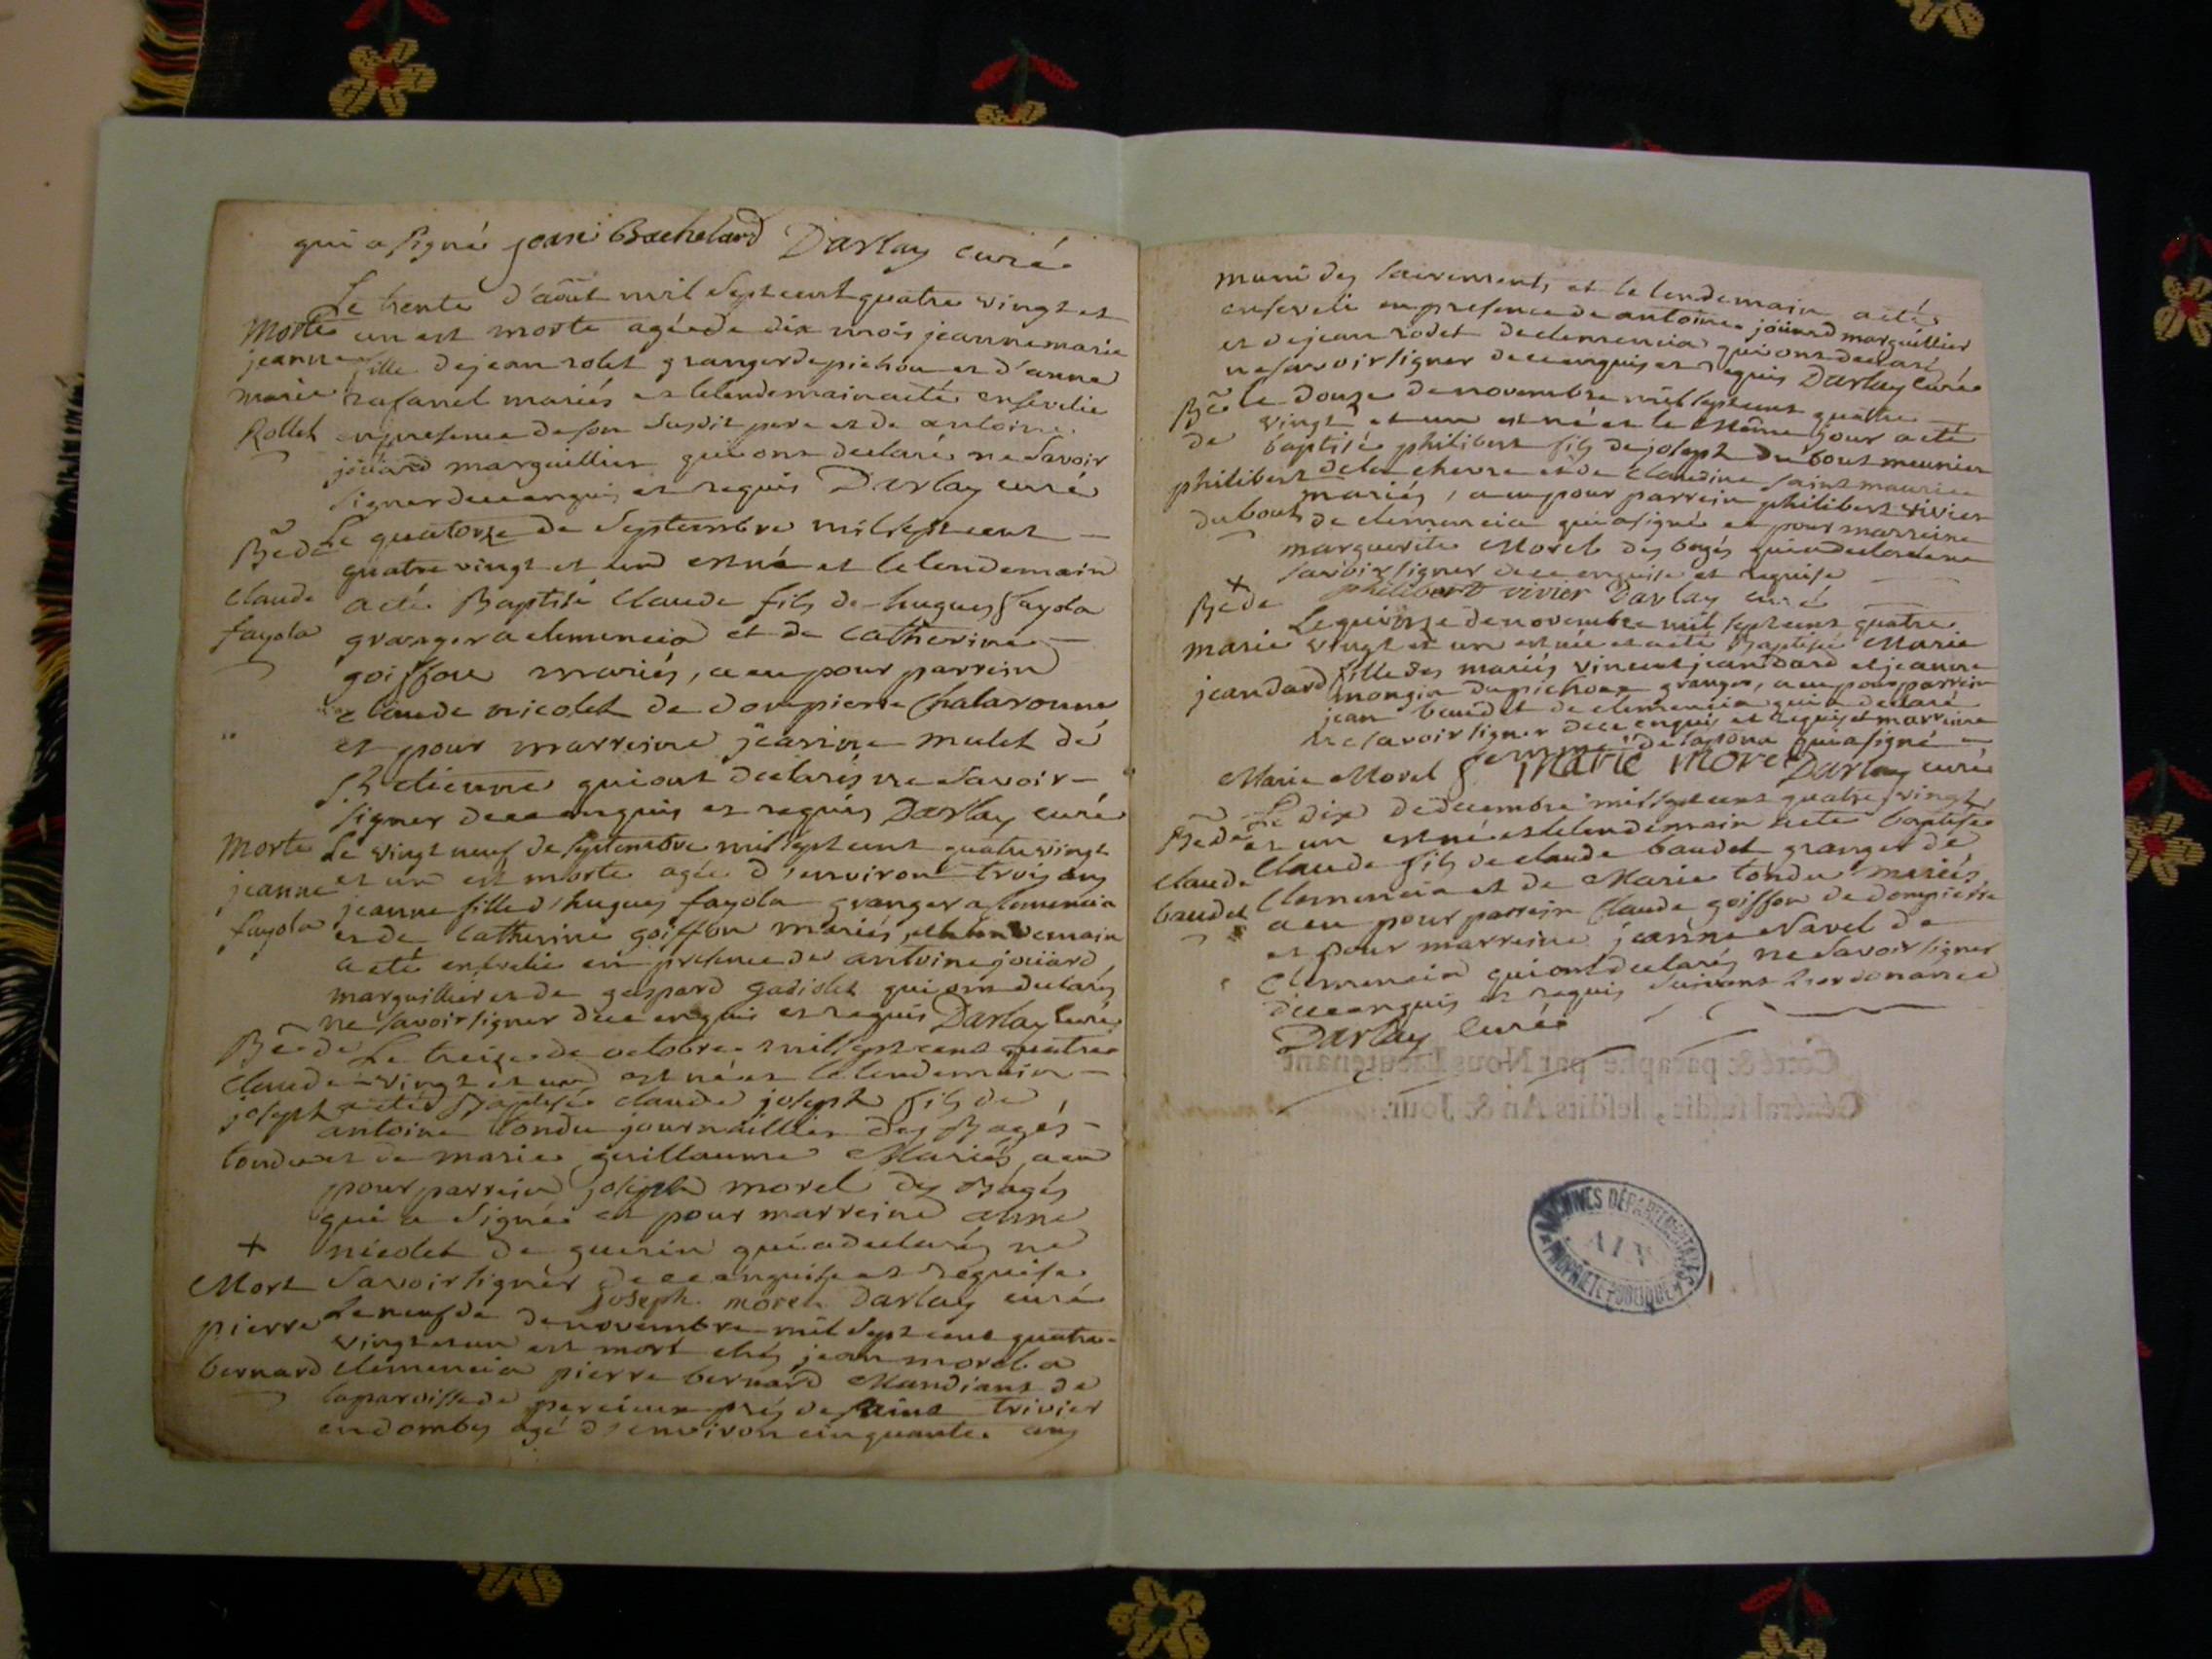 qui a signé jean Bachelard Darlay curé
Le trente d'août mil sept cent quatre vingt et
Morte un est morte agée de dix mois jeanne marie
jeanne fille de jean rolet granger de pichou et d'anne
marie rafanel mariés et le lendemain a été ensevelie
Rollet en presence de son susdit pere et de antoine
joüard marguillier qui ont declaré ne savoir
signer de ce enquis et requis Darlay curé
Bẽ de Le quatorze de septembre mil sept cent
quatre vingt et und est né et le lendemain
claude a été Baptisé claude fils de hugues fayola
fayola granger a clemencia et de catherine
goiffon mariés, a eu pour parrein
claude nicolet de dompierre chalaronne
et pour marreine jeanne mulet de
St etienne qui ont declarés ne savoir
signer de ce enquis et requis Darlay curé
Morte Le vingt neuf de septembre mil sept cent quatre vingt
jeanne et un est morte agée d'environ trois ans
fayola jeanne fille d'hugues fayola granger a clemencia
et de catherine goiffon mariés, et le lendemain
a eté ensevelie en presence de antoine joüard
marguillier et de gaspard gadiolet qui ont declarés
ne savoir signer de ce enquis et requis Darlay curé
Bẽ de Le treize de octobre mil sept cent quatre
claude vingt et und est né et le lendemain
joseph a été Baptisé claude joseph fils de
antoine tondu journaillier des Bagés
tondu et de marie guillaume Mariés, a eu
pour parrein joseph morel des Bagés
qui a signé et pour marreine anne
+ nicolet de guerin qui a declarés ne
Mort savoir signer de ce enquise et requise
joseph morel Darlay curé
pierre Le neuf de novembre mil sept cent quatre
vingt et un est mort chés jean morel a
bernard clemencia pierre bernard Mandiant de
la paroisse de percieux prés de saint trivier
en dombes agé d'environ cinquante ans
muni des sacrements et le lendemain a eté
enseveli en presence de antoine joüard marguillier
et de jean rodet de clemencia qui ont declaré
ne savoir signer de ce enquis et requis Darlay curé
Bẽ Le douze de novembre mil sept cent quatre
de vingt et un est né et le même jour a eté
baptisé philibert fils de joseph dubout meunier
philibert de la chevre et de claudine saint maurice
mariés, a eu pour parrein philibert vivier
dubout de clemencia qui a signé et pour marreine
marguerite Morel des bagés qui a declaré ne
savoir signer de ce enquise et requise
+ philibert vivier Darlay curé
Bẽ de Le quinze de novembre mil sept cent quatre
marie vingt et un est née et a eté Baptisée Marie
jeandard fille des mariés vincent jeandard et jeanne
mongin du pichoux granger, a eu pour parrein
jean baudet de clemencia qui a declaré
ne savoir signer de ce enquis et requis et marreine
Marie Morel femme de qui a signé
marie morel Darlay curé
Bẽ de Le dix de decembre mil sept cent quatre vingt
et un est né et le lendemain a eté baptisé
claude Claude fils de claude baudet granger de
baudet Clemencia et de Marie tondu mariés
a eu pour parrein Claude goiffon de dompierre
et pour marreine jeanne navel de
Clemencia qui ont declarés ne savoir signer
de ce enquis et requis suivant l'ordonance
Darlay Curé
Cotté & paraphé par Nous Lieutenant
Général susdit, lesdits An & Jour.
ARCHIVES DÉPARTEMENTALES
AIN
PROPRIÉTÉ PUBLIQUE